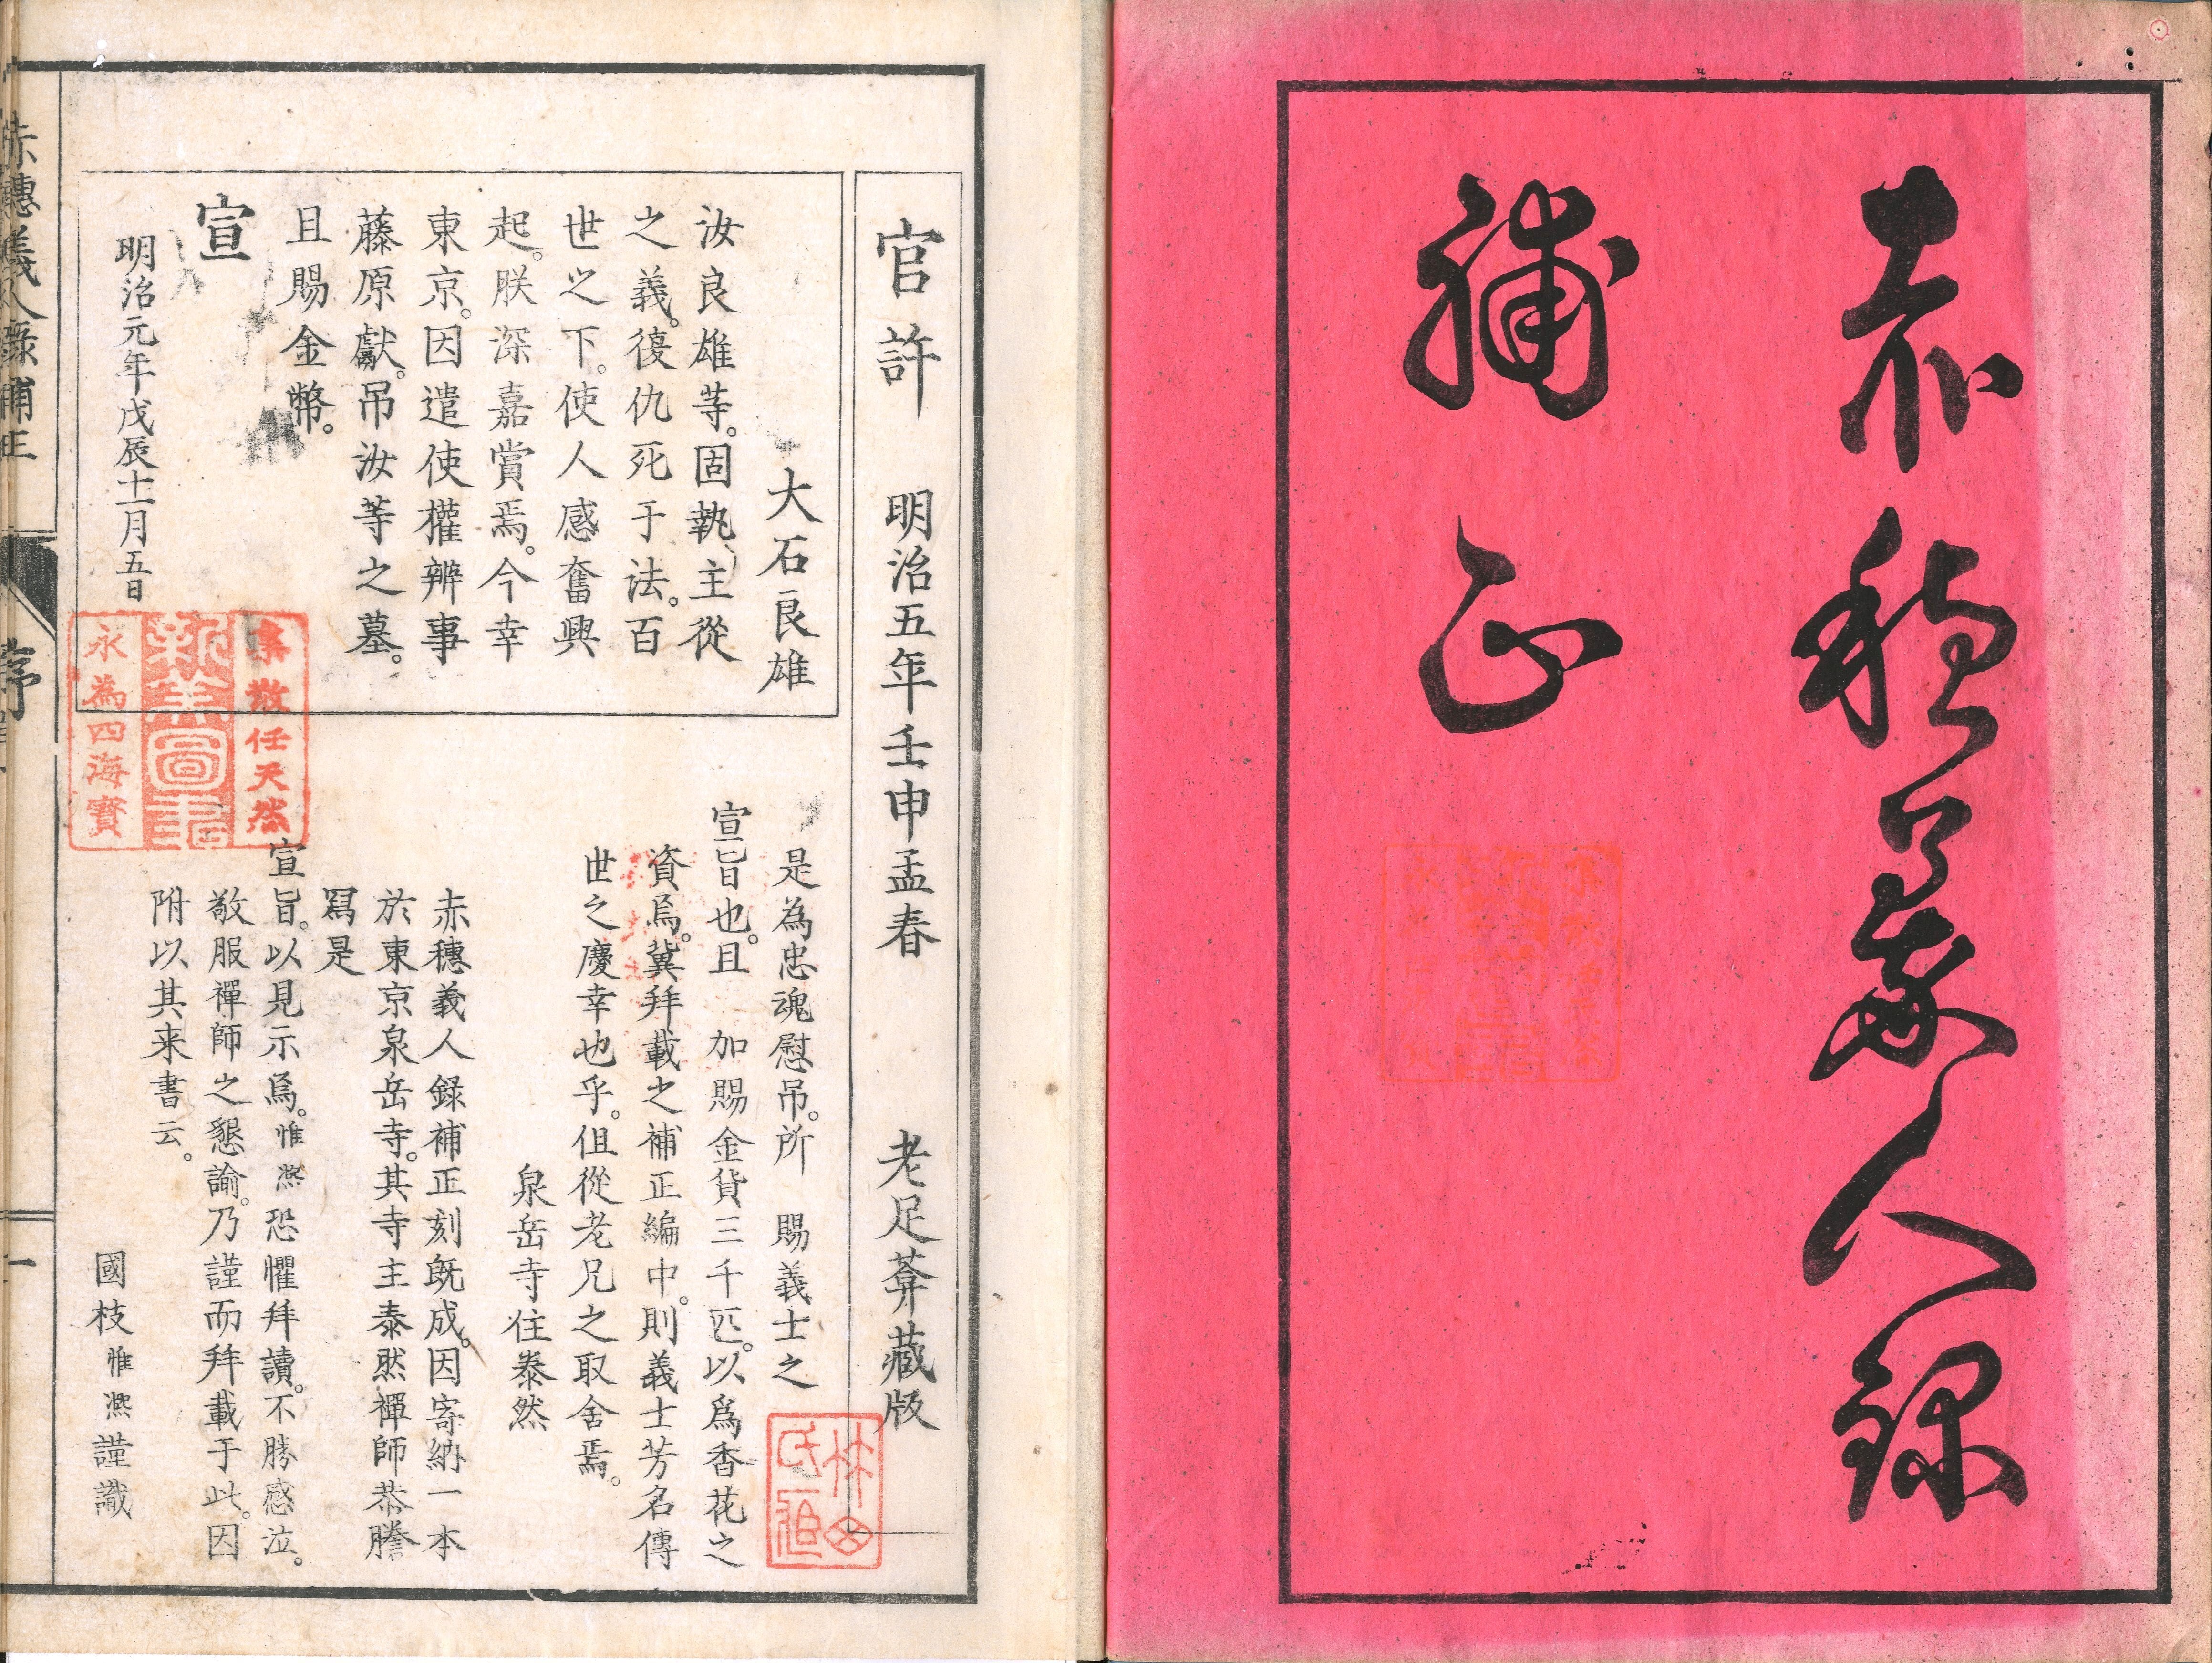 赤穂義人録
補正
官許　明治五年壬申孟春　老足葊藏版
大石良雄
汝良雄等。固執主從
之義。復仇死于法。百
世之下。使人感奮興
起。朕深嘉賞焉。今幸
東京。因遣使權辨事
藤原獻。吊汝等之墓。
且賜金幣。
宣
明治元年戊辰十一月五日
是為忠魂慰吊。所　賜義士之
宣旨也。且　加賜金貨三千匹。以爲香花之
資焉。冀拜載之補正編中。則義士芳名傳
世之慶幸也乎。但從老兄之取舍焉。
泉岳寺住泰然
赤穗義人錄補正刻既成。因寄納一本
於東京泉岳寺。其寺主泰然禪師恭謄
寫是
宣旨。以見示焉。惟凞恐懼拜讀。不勝感泣。
敬服禪師之懇諭。乃謹而拜載于此。因
附以其来書云。
國枝惟凞謹識
赤穗義人錄補正
序
一
任天然
永為四海寶